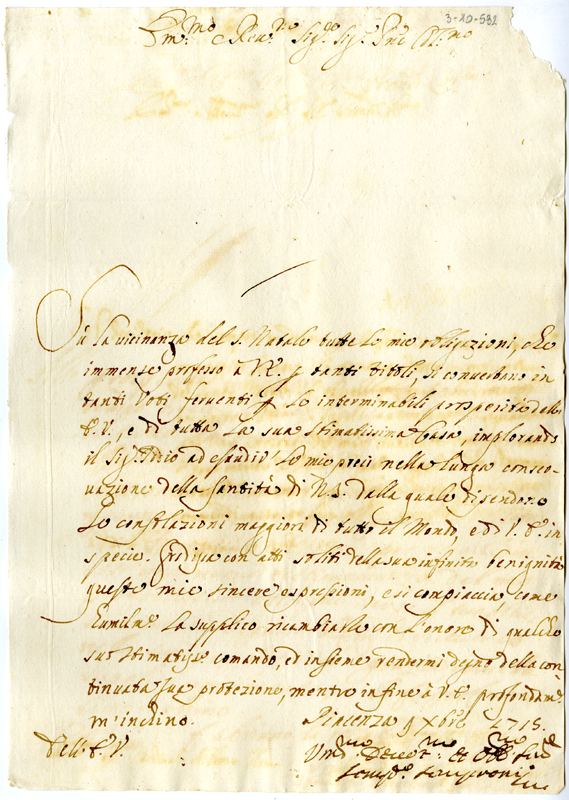 3-20-532
Em.mo e Rev.mo Sig.re Sig.re Pne Col.mo
Su la vicinanza del S. Natale tutte le mie obligazioni, che
immense professo à V.E. p tanti titoli, si convertano in
tanti Voti ferventi p le interminabili prosperità dell'
E.V., e di tutta la sua Stimatissima Casa, implorando
il Sig.r Iddio ad esaudir le mie preci nella lunga conser-
uazione della Santità di N.S. dalla quale discendono
le consolazioni maggiori di tutto il Mondo, e di V.E. in
specie. Gradisca con atti soliti della sua infinita benignità
queste mie sincere espressioni, e si compiaccia, come
humilm.e la supplico ricambiarle con l'onore di qualche
suo stimatiss.o comando, ed insieme rendermi degno della con
tinuata sua protezione, mentre in fine à V.E. profondam.e
m'inchino.
Piacenza 9 Xbre 1715.
Dell'E.V.
Um.mo Devot.mo et Obb Ser.e